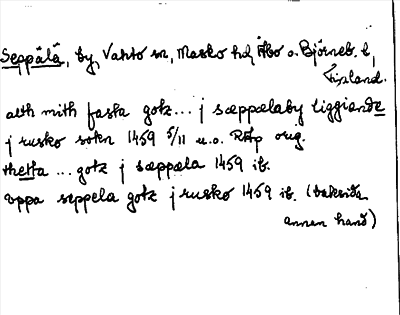 Seppälä, by, Vahto sn, Masko hd, Åbo o. Björneb. l,
Finland.
alth mith fasta gotz ... j sæppælaby liggiande
j rusko sokn 1459 5/11 u.o. RAp orig.
thetta ... gotz j sæppæla 1459 ib.
uppa seppela gotz j rusko 1459 ib. (baksida
annan hand)